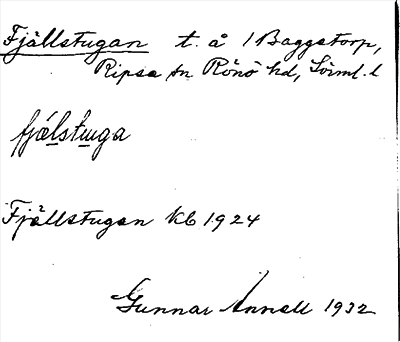 Fjällstugan t. å 1 Baggetorp,
Ripsa sn Rönö hd, Sörml. l
fjälstuga
Fjällstugan Kb 1924
Gunnar Annell 1932